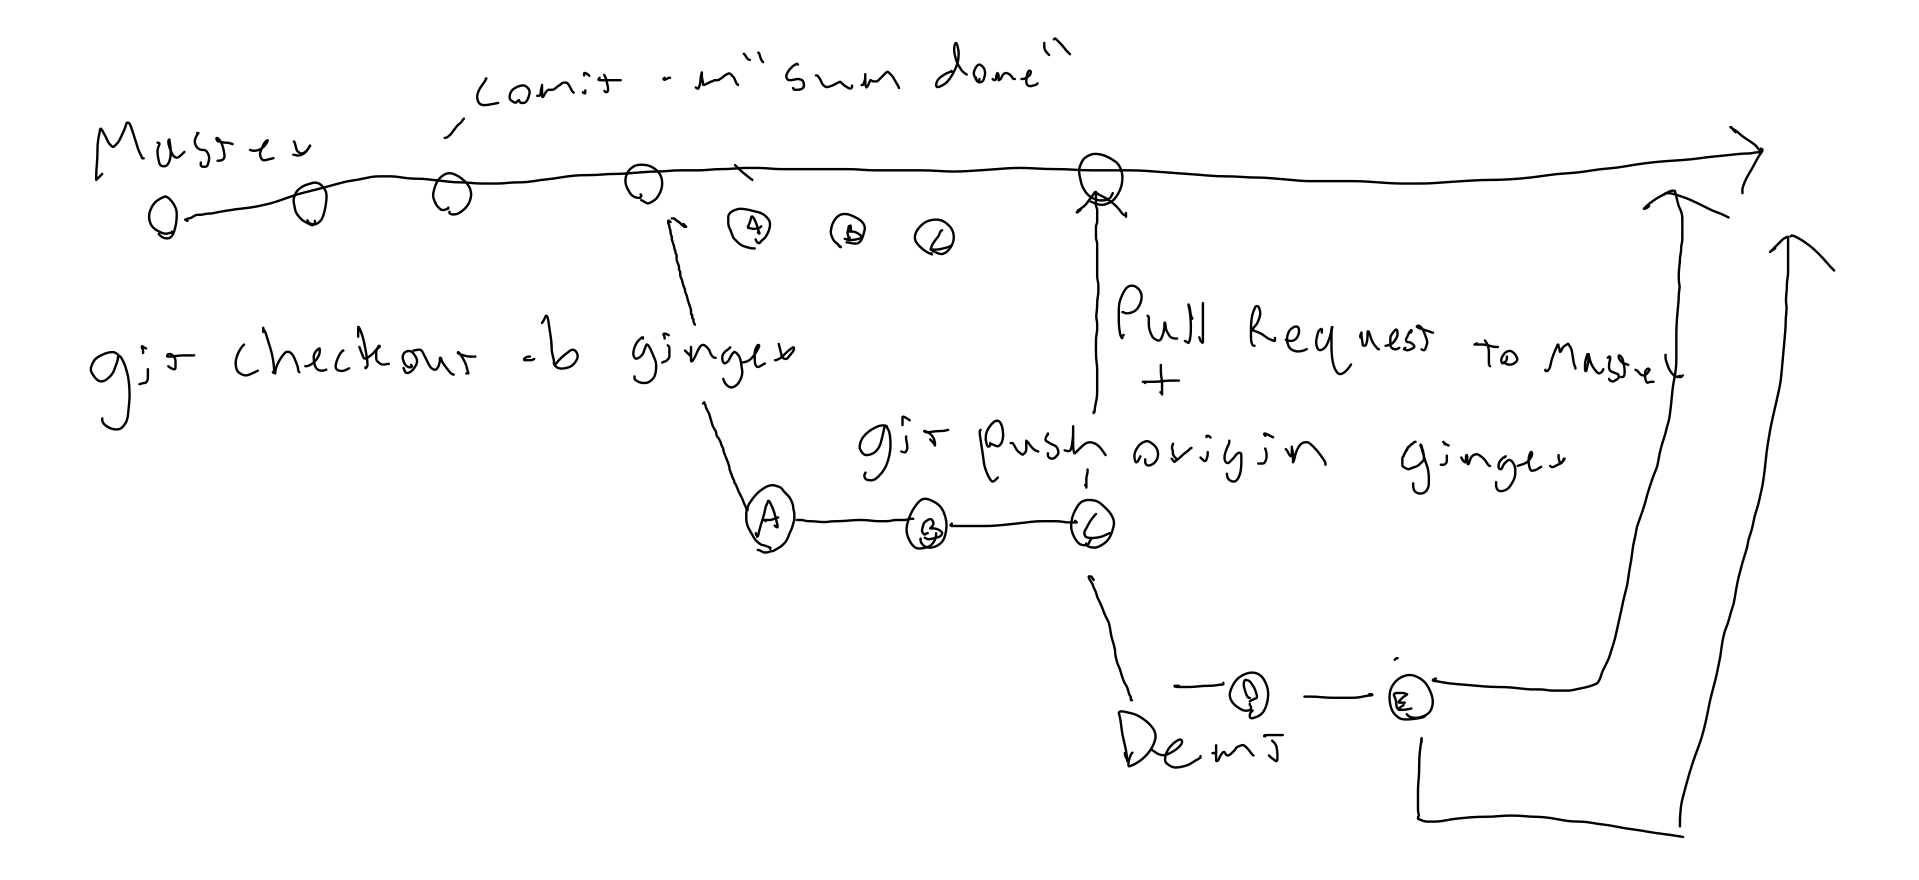 comit -m "sum done"
Master
A B C
git checkout -b ginger
Pull Request to Master
+
git push origin ginger
A B C
D E